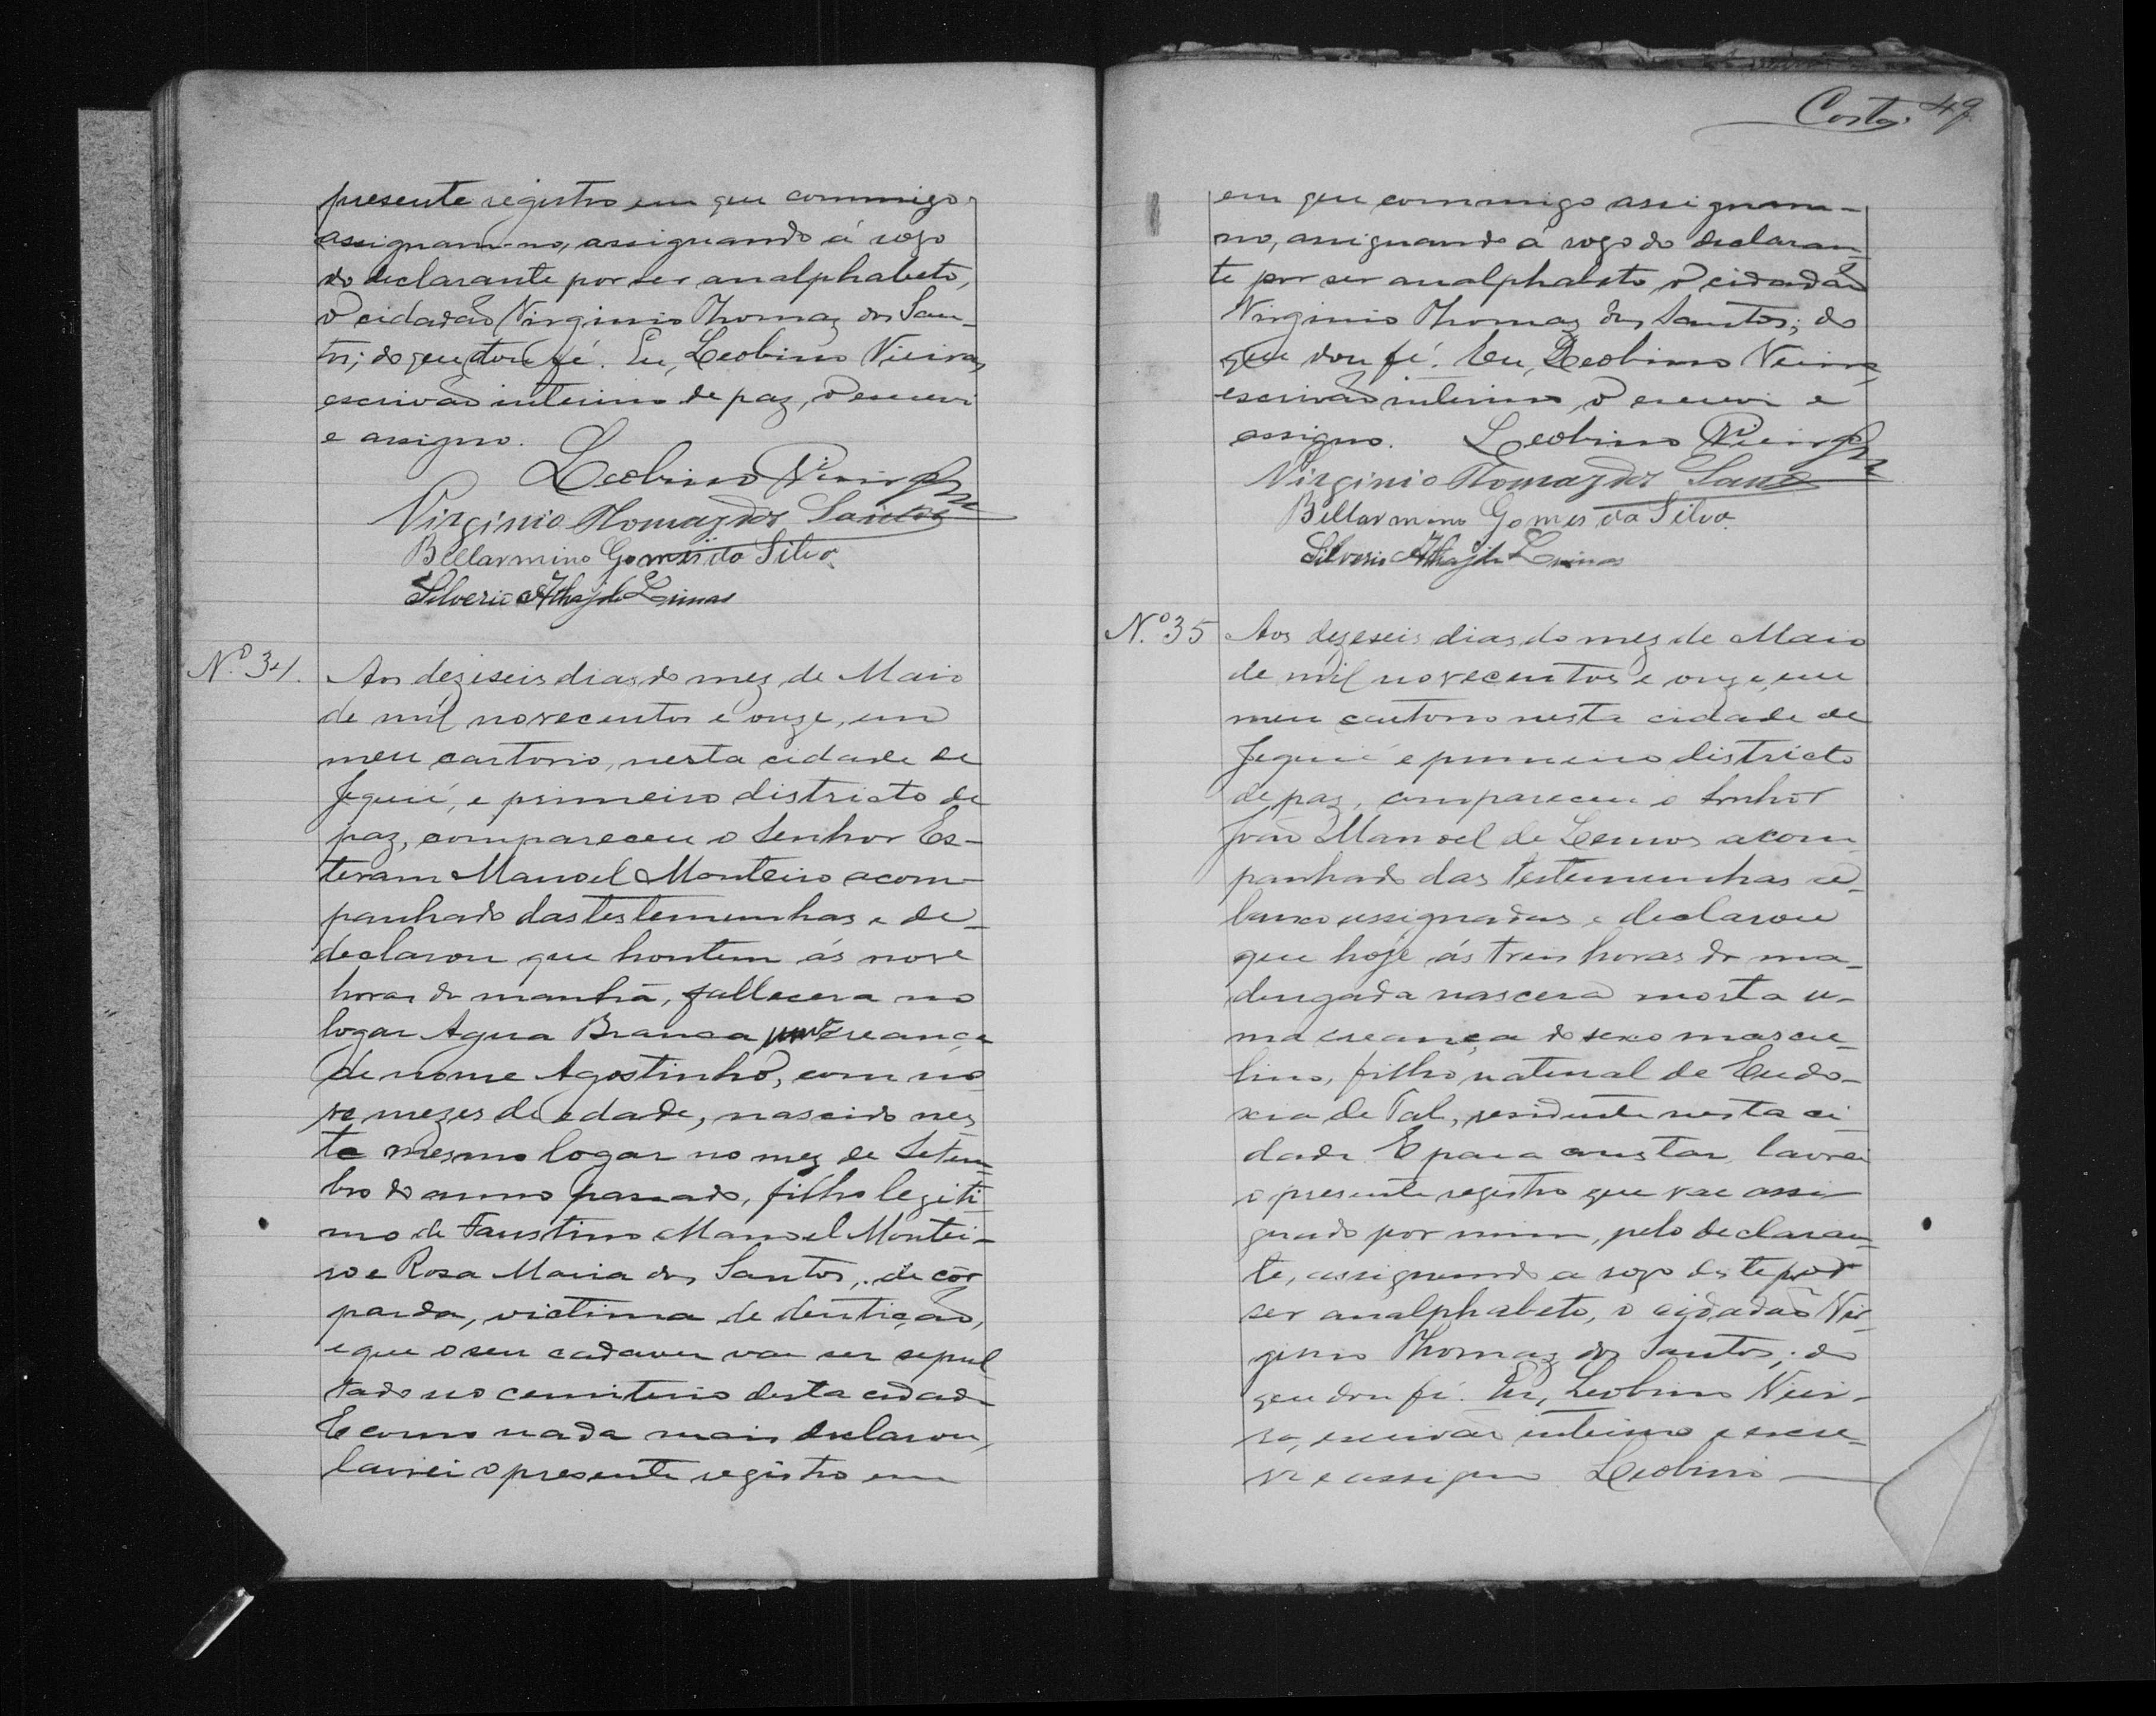 presente registro em que commigo
assignam-no, assignando á rogo
do declarante por ser analphabeto,
o cidadão Virginio Thomaz dos San-
tos; do que dou fé. Eu, Leobino Vieira,
escrivão interino de paz, o escrevi
e assigno.
Leobino Vieira
Virginio Thomaz dos Santos
Bellarmino Gomes da Silva
Silverio Athayde Lemos
Nº 34.
Aos dezeseis dias do mez de Maio
de mil novecentos e onze, em
meu cartorio, nesta cidade de
Jequié, e primeiro districto de
paz, compareceu o senhor Es-
tevam Manoel Monteiro acom-
panhado das testemunhas e de-
declarou que hontem ás nove
horas da manhã, fallecera no
logar Agua Branca creança
de nome Agostinho, com no
ve mezes de edade, nascido nes
te mesmo logar no mez de Setem-
bro do anno passado, filho legiti-
mo de Faustino Manoel Montei-
ro e Rosa Maria dos Santos, de côr
parda, victima de dentição,
e que o seu cadaver vae ser sepul
tado no cemiterio desta cidade
E como nada mais declarou,
lavrei o presente registro em
Costa. 49
em que commigo assignam-
no, assignando á rogo do declaran-
te por ser analphabeto, o cidadão
Virginio Thomaz dos Santos; do
que dou fé. Eu, Leobino Vieira,
escrivão interino, o escrevi e
assigno. Leobino Vieira
Virginio Thomaz dos Santos
Bellarmino Gomes da Silva
Silverio Athayde Lemos
Nº 35
Aos dezeseis dias do mez de Maio
de mil novecentos e onze, em
meu cartorio nesta cidade de
Jequié e primeiro districto
de paz, compareceu o senhor
João Manoel de Lemos acom
panhado das testemunhas a-
baixo assignadas e declarou
que hoje ás tres horas da ma-
drugada nascera morta u-
ma creança do sexo mascu-
lino, filho natural de Eudo-
xia de Tal, residente nesta ci
dade. E para constar lavrei
o presente registro que vae assi-
gnado por mim, pelo declaran-
te, assignando a rogo deste por
ser analphabeto, o cidadão Vir-
ginio Thomaz dos Santos; do
que dou fé. Eu, Leobino Viei-
ra, escrivão interino o escre-
vi e assigno Leobino